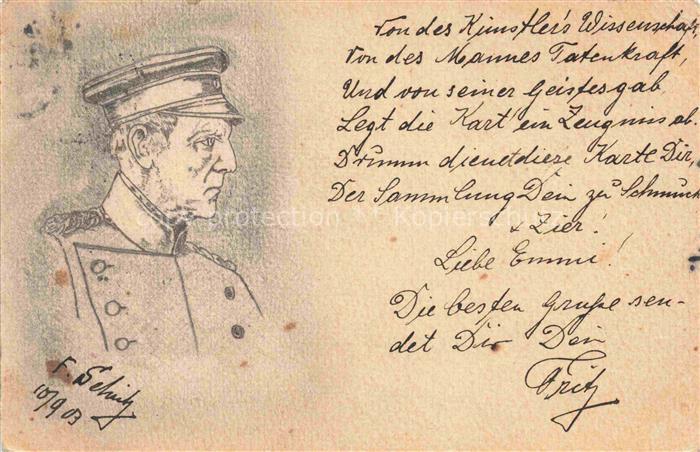 Von des Künstler's Wissenschaft,
Von des Mannes Tatenkraft,
Und von seiner Geistesgab
Legt die Kart' ein Zeugnis ab.
Drumm dienet diese Karte Dir,
Der Sammlung Dein zu Schmuck
& Zier!
Liebe Emmi!
Die besten Grüße sen-
det Dir Dein
Fritz
F.
10/9 03
copy protection * Kopierschutz